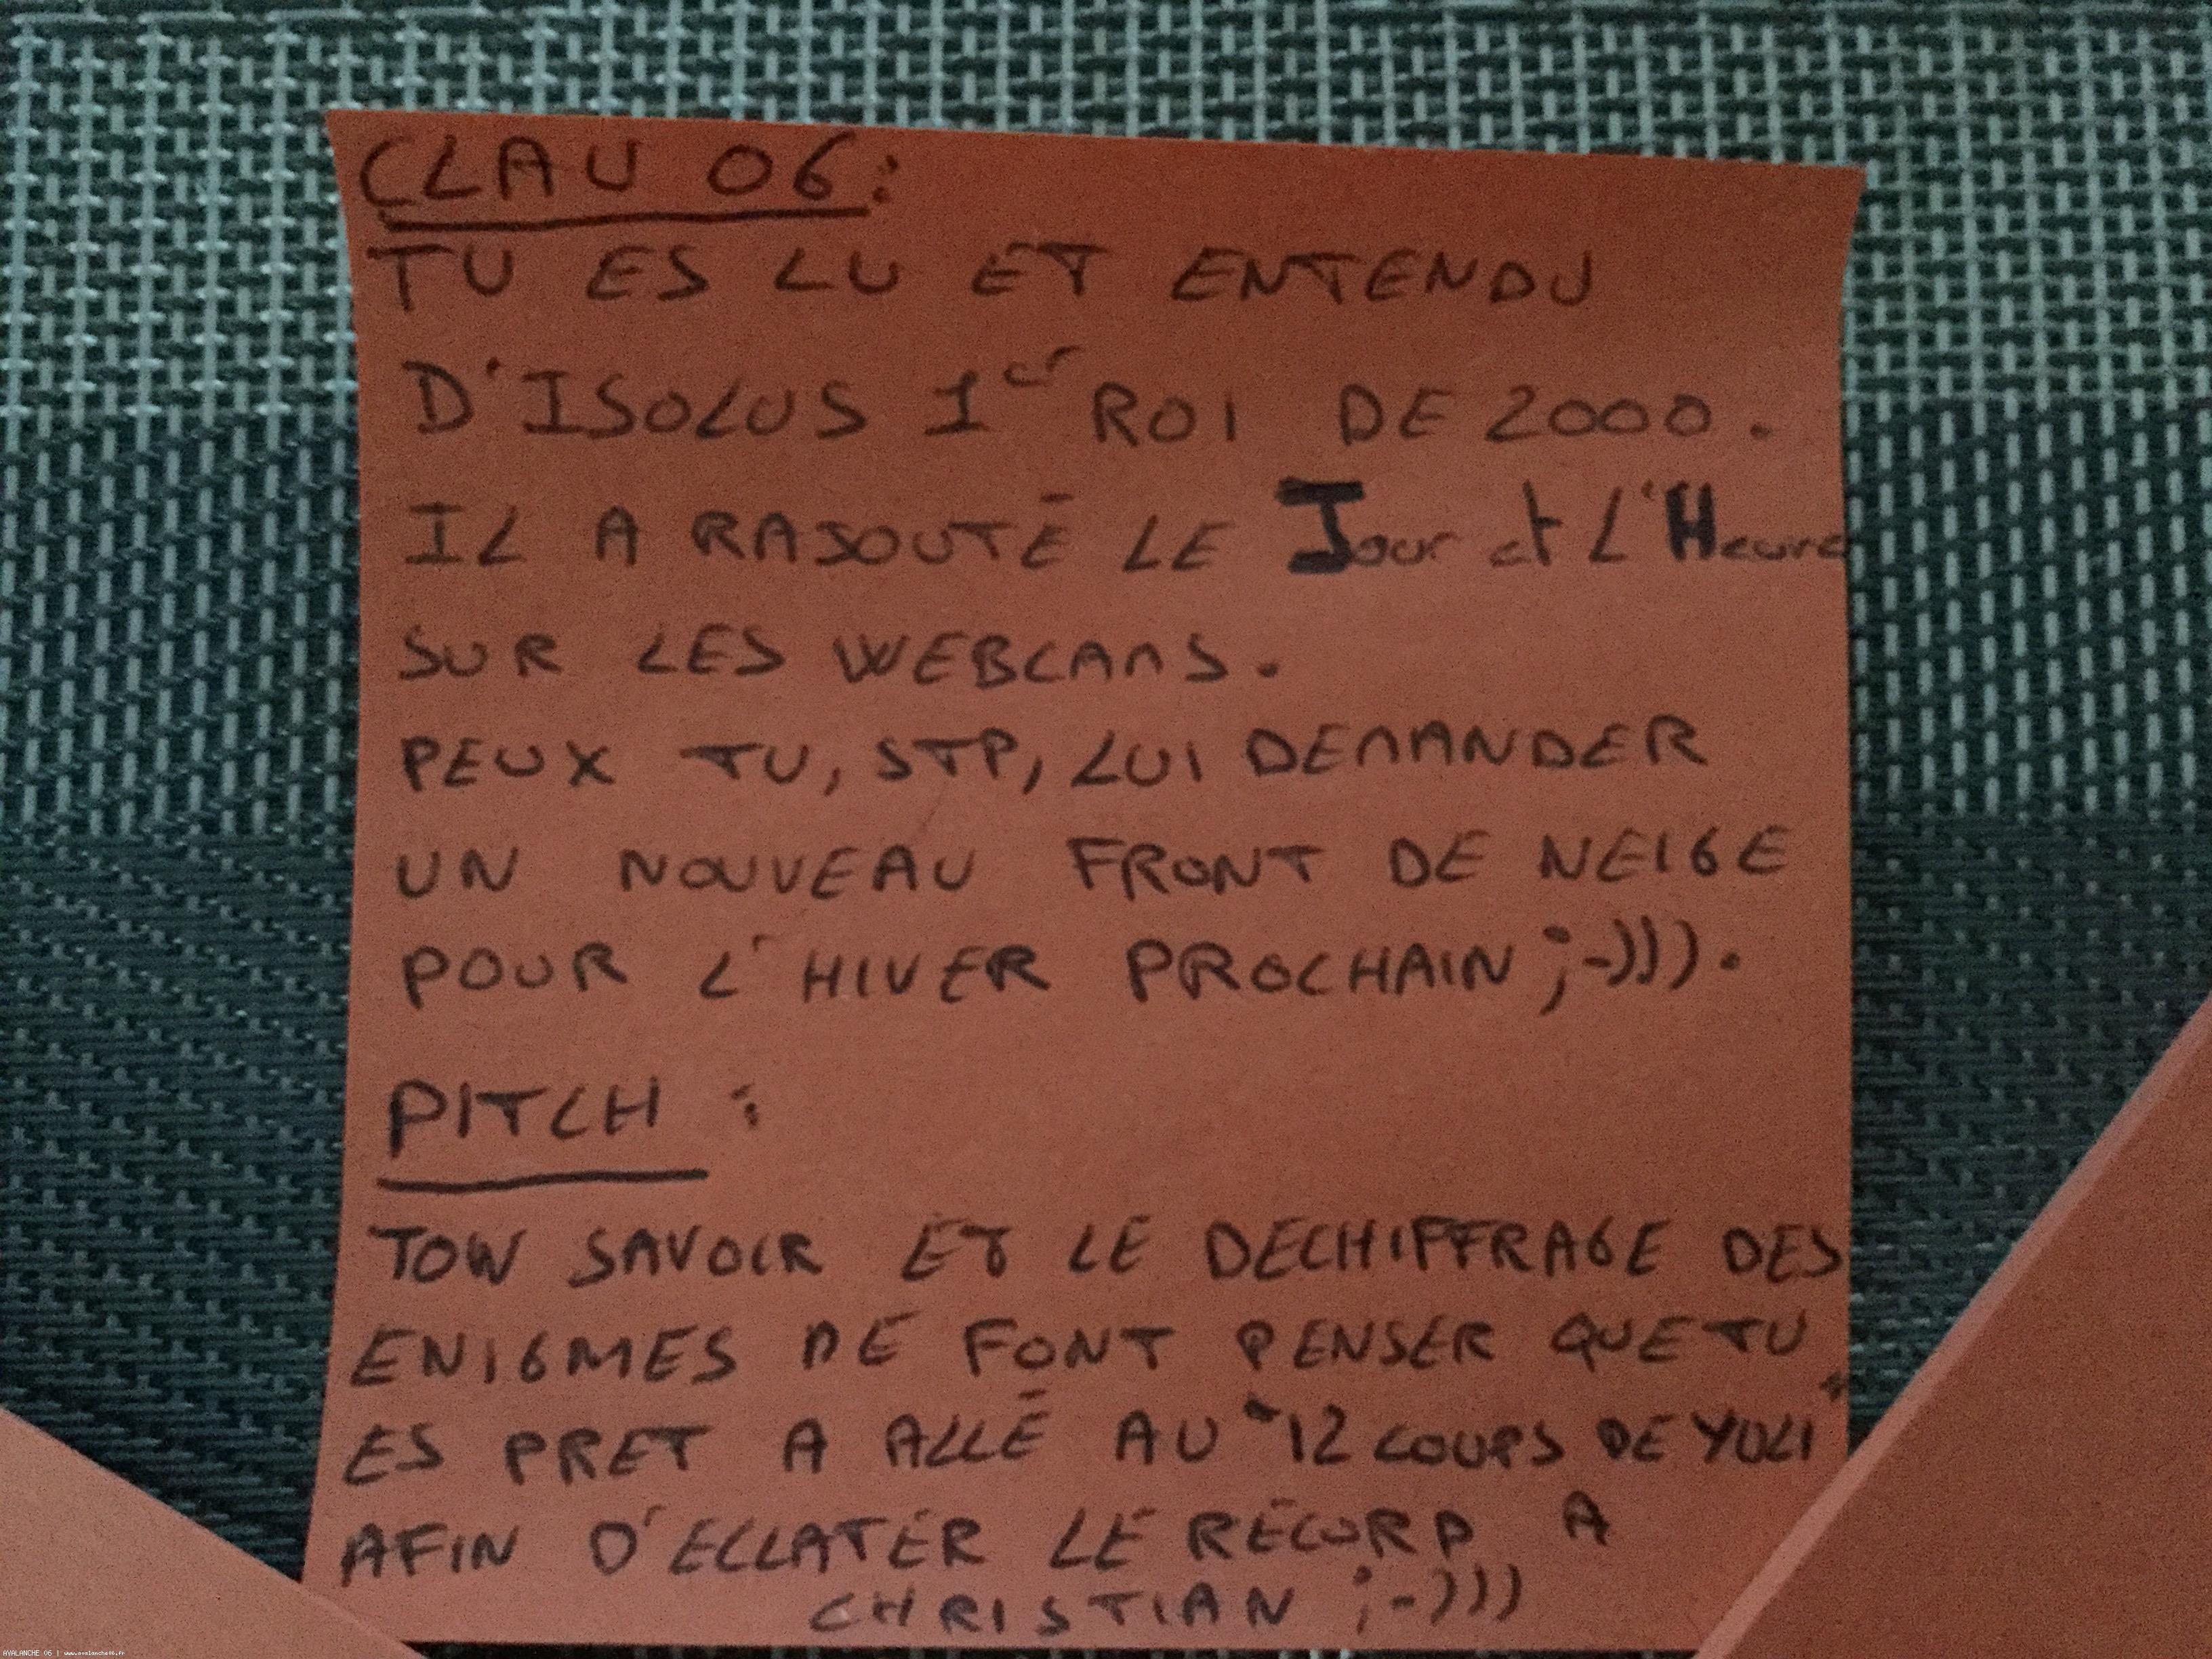 CLAU 06:
TU ES LU ET ENTENDU
D'ISOLUS 1er ROI DE 2000.
IL A RAJOUTÉ LE Jour et L'Heure
SUR LES WEBCAMS.
PEUX TU, STP, LUI DEMANDER
UN NOUVEAU FRONT DE NEIGE
POUR L'HIVER PROCHAIN ;-))).
PITCH :
TON SAVOIR ET LE DECHIFFRAGE DES
ENIGMES ME FONT PENSER QUE TU
ES PRET A ALLÉ AU "12 COUPS DE YOLI"
AFIN D'ECLATER LE RECORD A
CHRISTIAN ;-)))
AVALANCHE 06 | www.avalanche06.fr